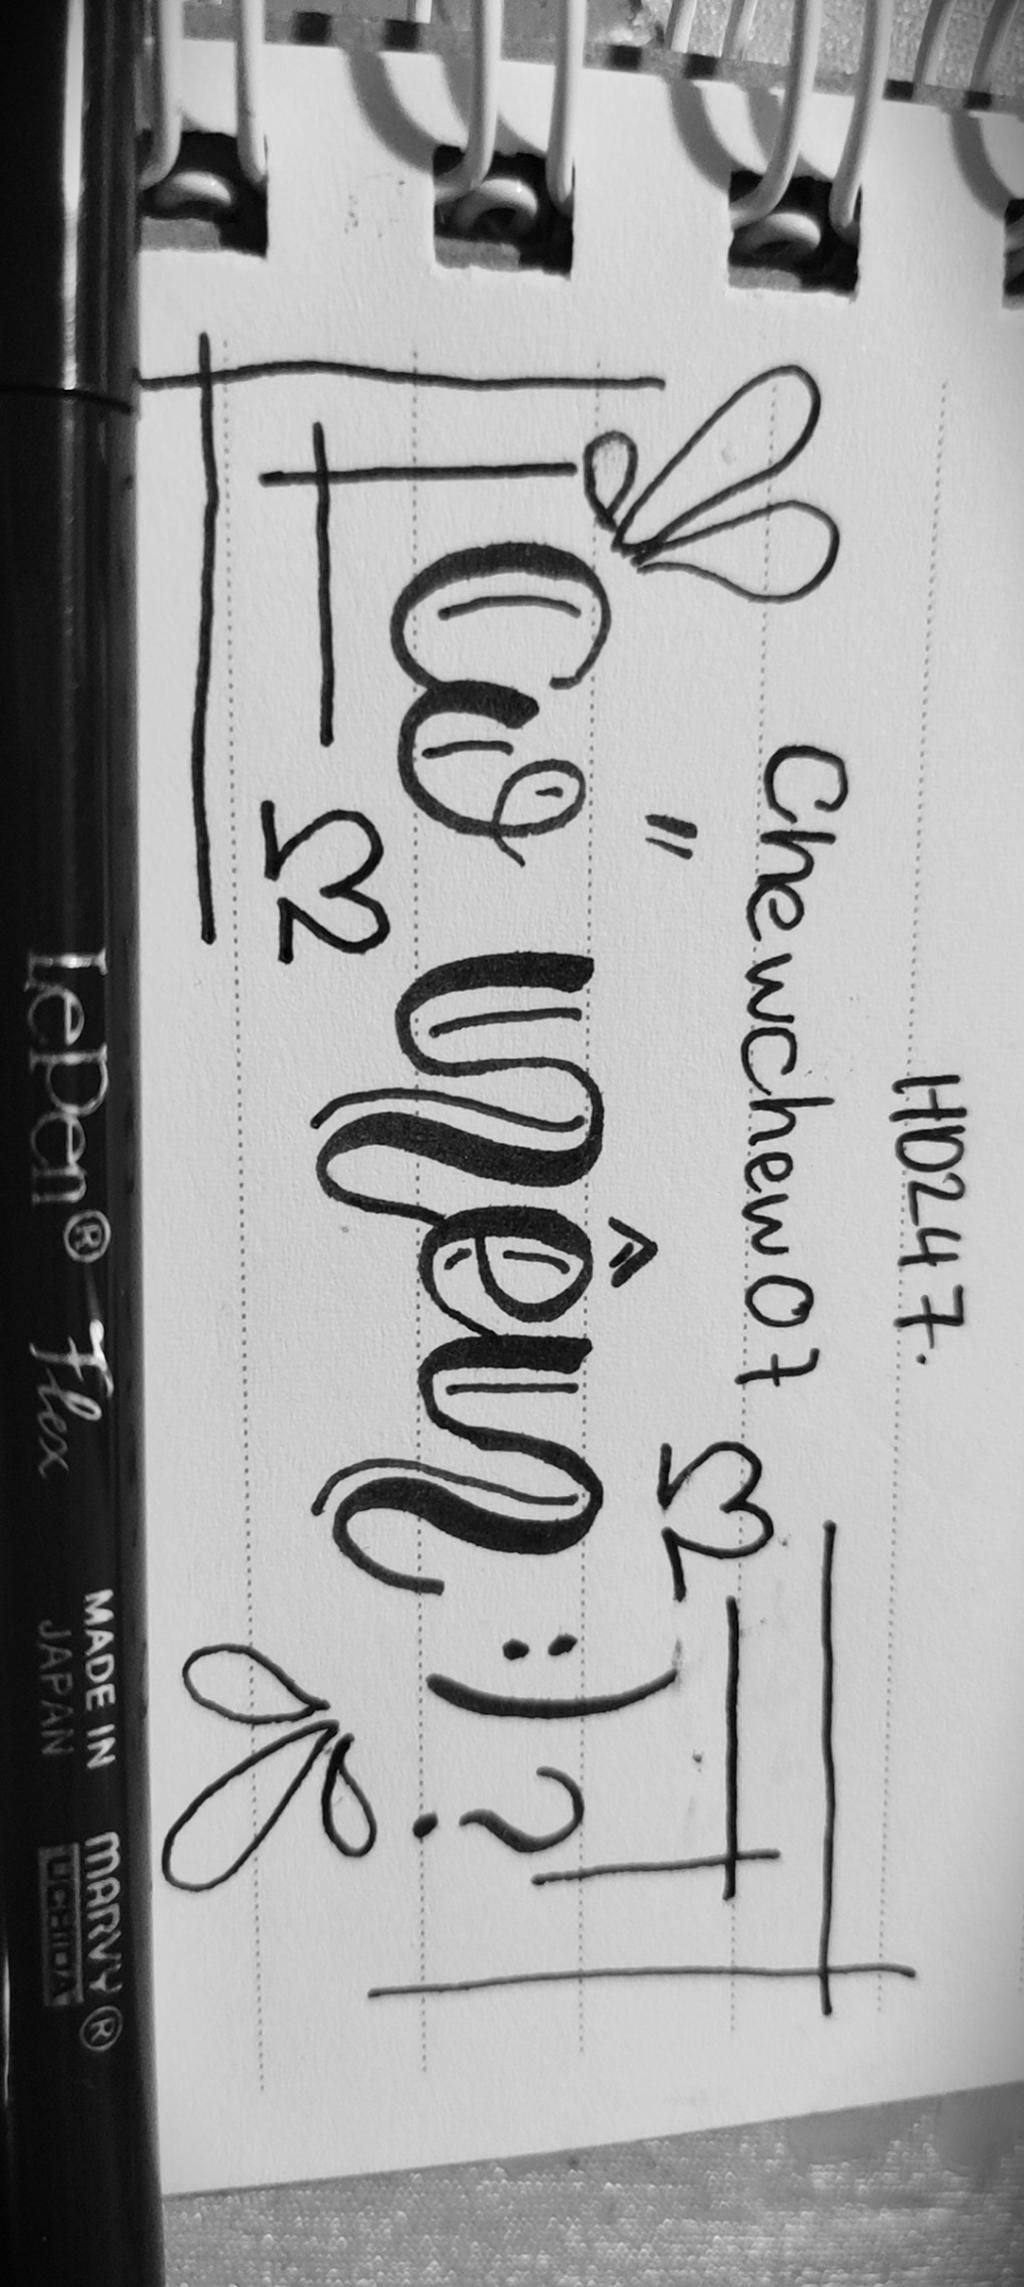 HD247.
Chewchewot
Có yêy :) ?
LePen® Flex
MADE IN JAPAN
MARVY® UCHIDA